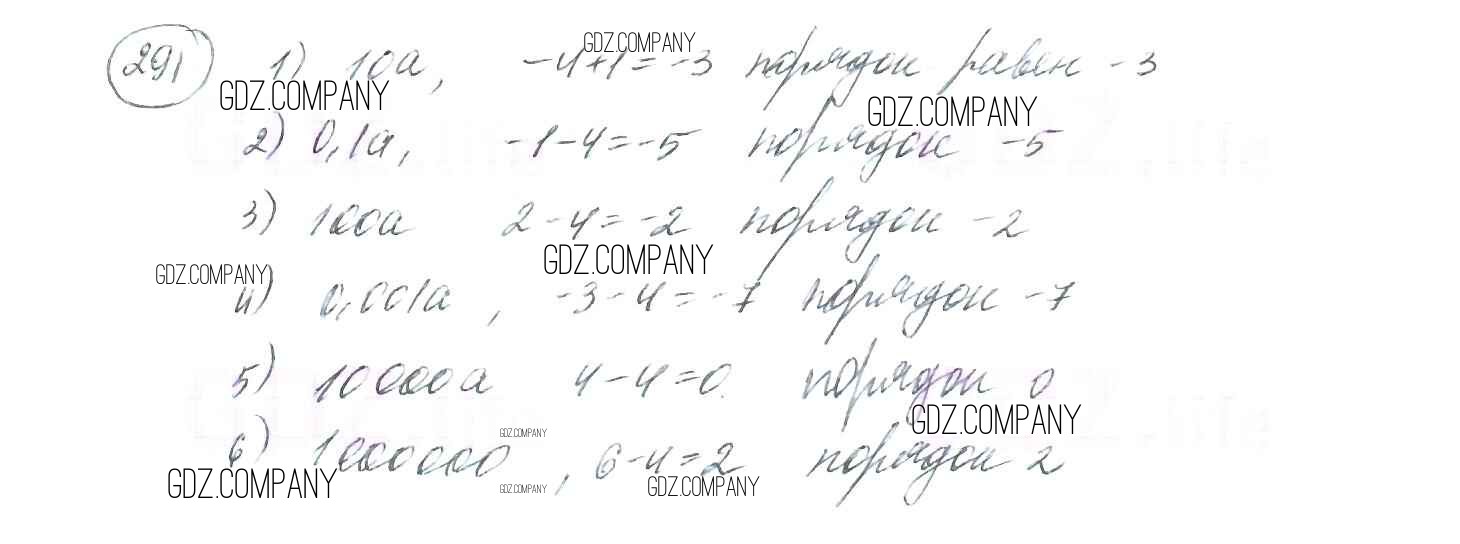 291 1) 10a, -4+1=-3 порядок равен -3
2) 0,1a, -1-4=-5 порядок -5
3) 100a 2-4=-2 порядок -2
4) 0,001a, -3-4=-7 порядок -7
5) 10000a 4-4=0. порядок 0
6) 1000000, 6-4=2 порядок 2
GDZ.COMPANY
GDZ.COMPANY
GDZ.COMPANY
GDZ.COMPANY
GDZ.COMPANY
GDZ.COMPANY
GDZ.COMPANY
GDZ.COMPANY
GDZ.COMPANY
GDZ.COMPANY